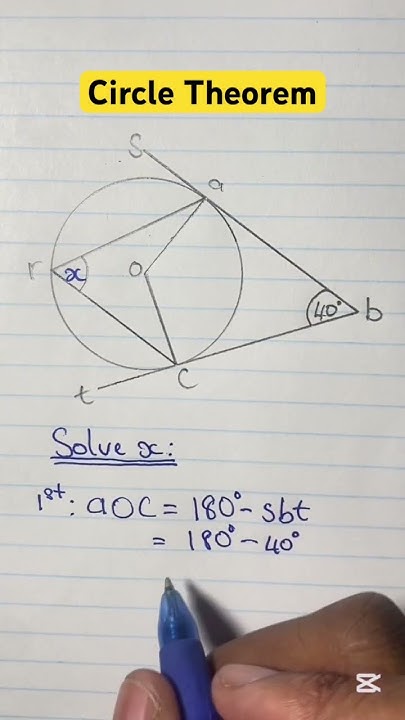 Circle Theorem
s
a
r
x
o
40°
b
c
t
Solve x:
1st: aOC = 180° - sbt
= 180° - 40°